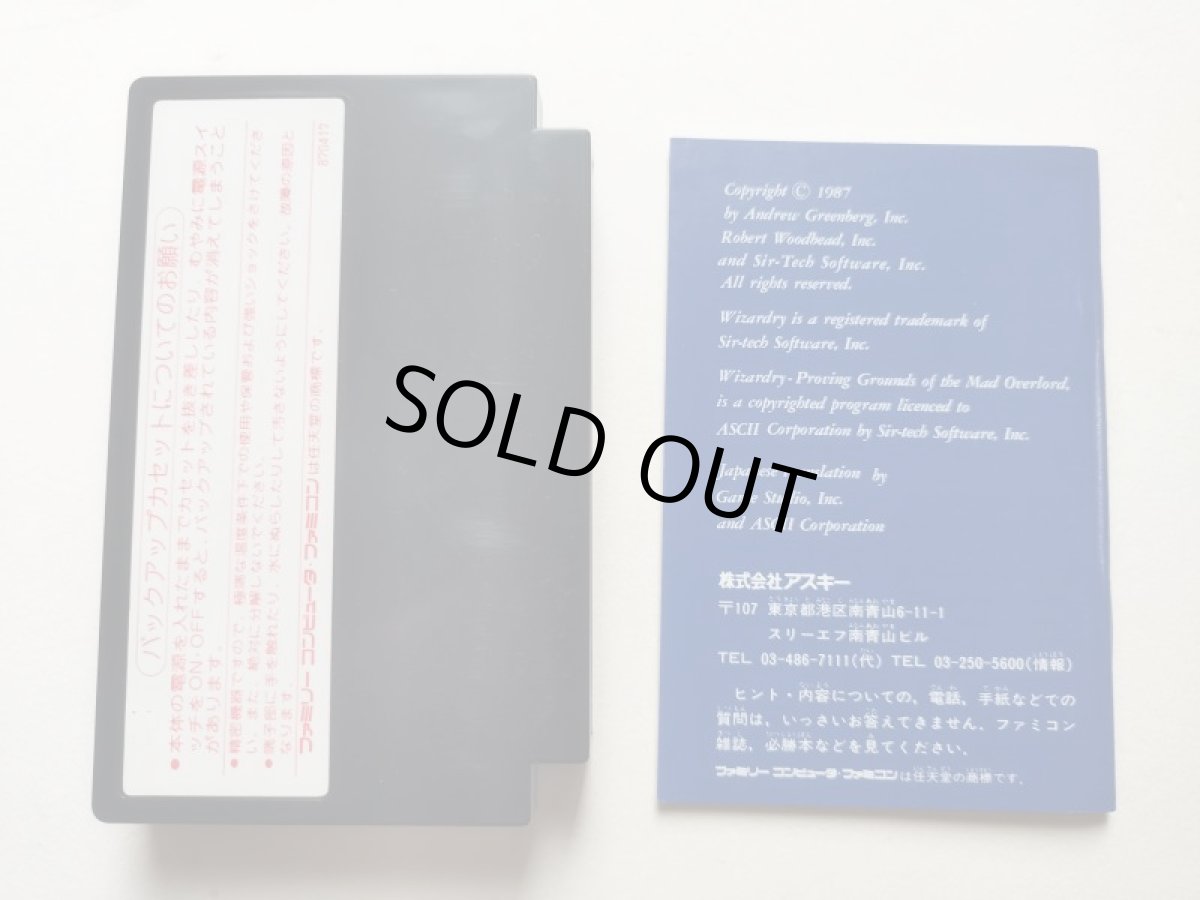 バックアップカセットについてのお願い
●本体の電源を入れたままでカセットを抜き差ししたり、むやみに電源スイ
ッチをON・OFFすると、バックアップされている内容が消えてしまうこと
があります。
●精密機器ですので、極端な温度条件下での使用や保管および強いショックをさけてくださ
い。また、絶対に分解しないでください。
●端子部に手を触れたり、水にぬらしたりして汚さないようにしてください。故障の原因と
なります。
ファミリーコンピュータ・ファミコンは任天堂の商標です。
870417
Copyright © 1987
by Andrew Greenberg, Inc.
Robert Woodhead, Inc.
and Sir-Tech Software, Inc.
All rights reserved.
Wizardry is a registered trademark of
Sir-tech Software, Inc.
Wizardry-Proving Grounds of the Mad Overlord,
is a copyrighted program licenced to
ASCII Corporation by Sir-tech Software, Inc.
Japanese translation by
Game Studio, Inc.
and ASCII Corporation
株式会社アスキー
〒107 東京都港区南青山6-11-1
スリーエフ南青山ビル
TEL 03-486-7111(代) TEL 03-250-5600(情報)
ヒント・内容についての、電話、手紙などでの
質問は、いっさいお答えできません。ファミコン
雑誌、必勝本などを見てください。
ファミリーコンピュータ・ファミコンは任天堂の商標です。
SOLD OUT